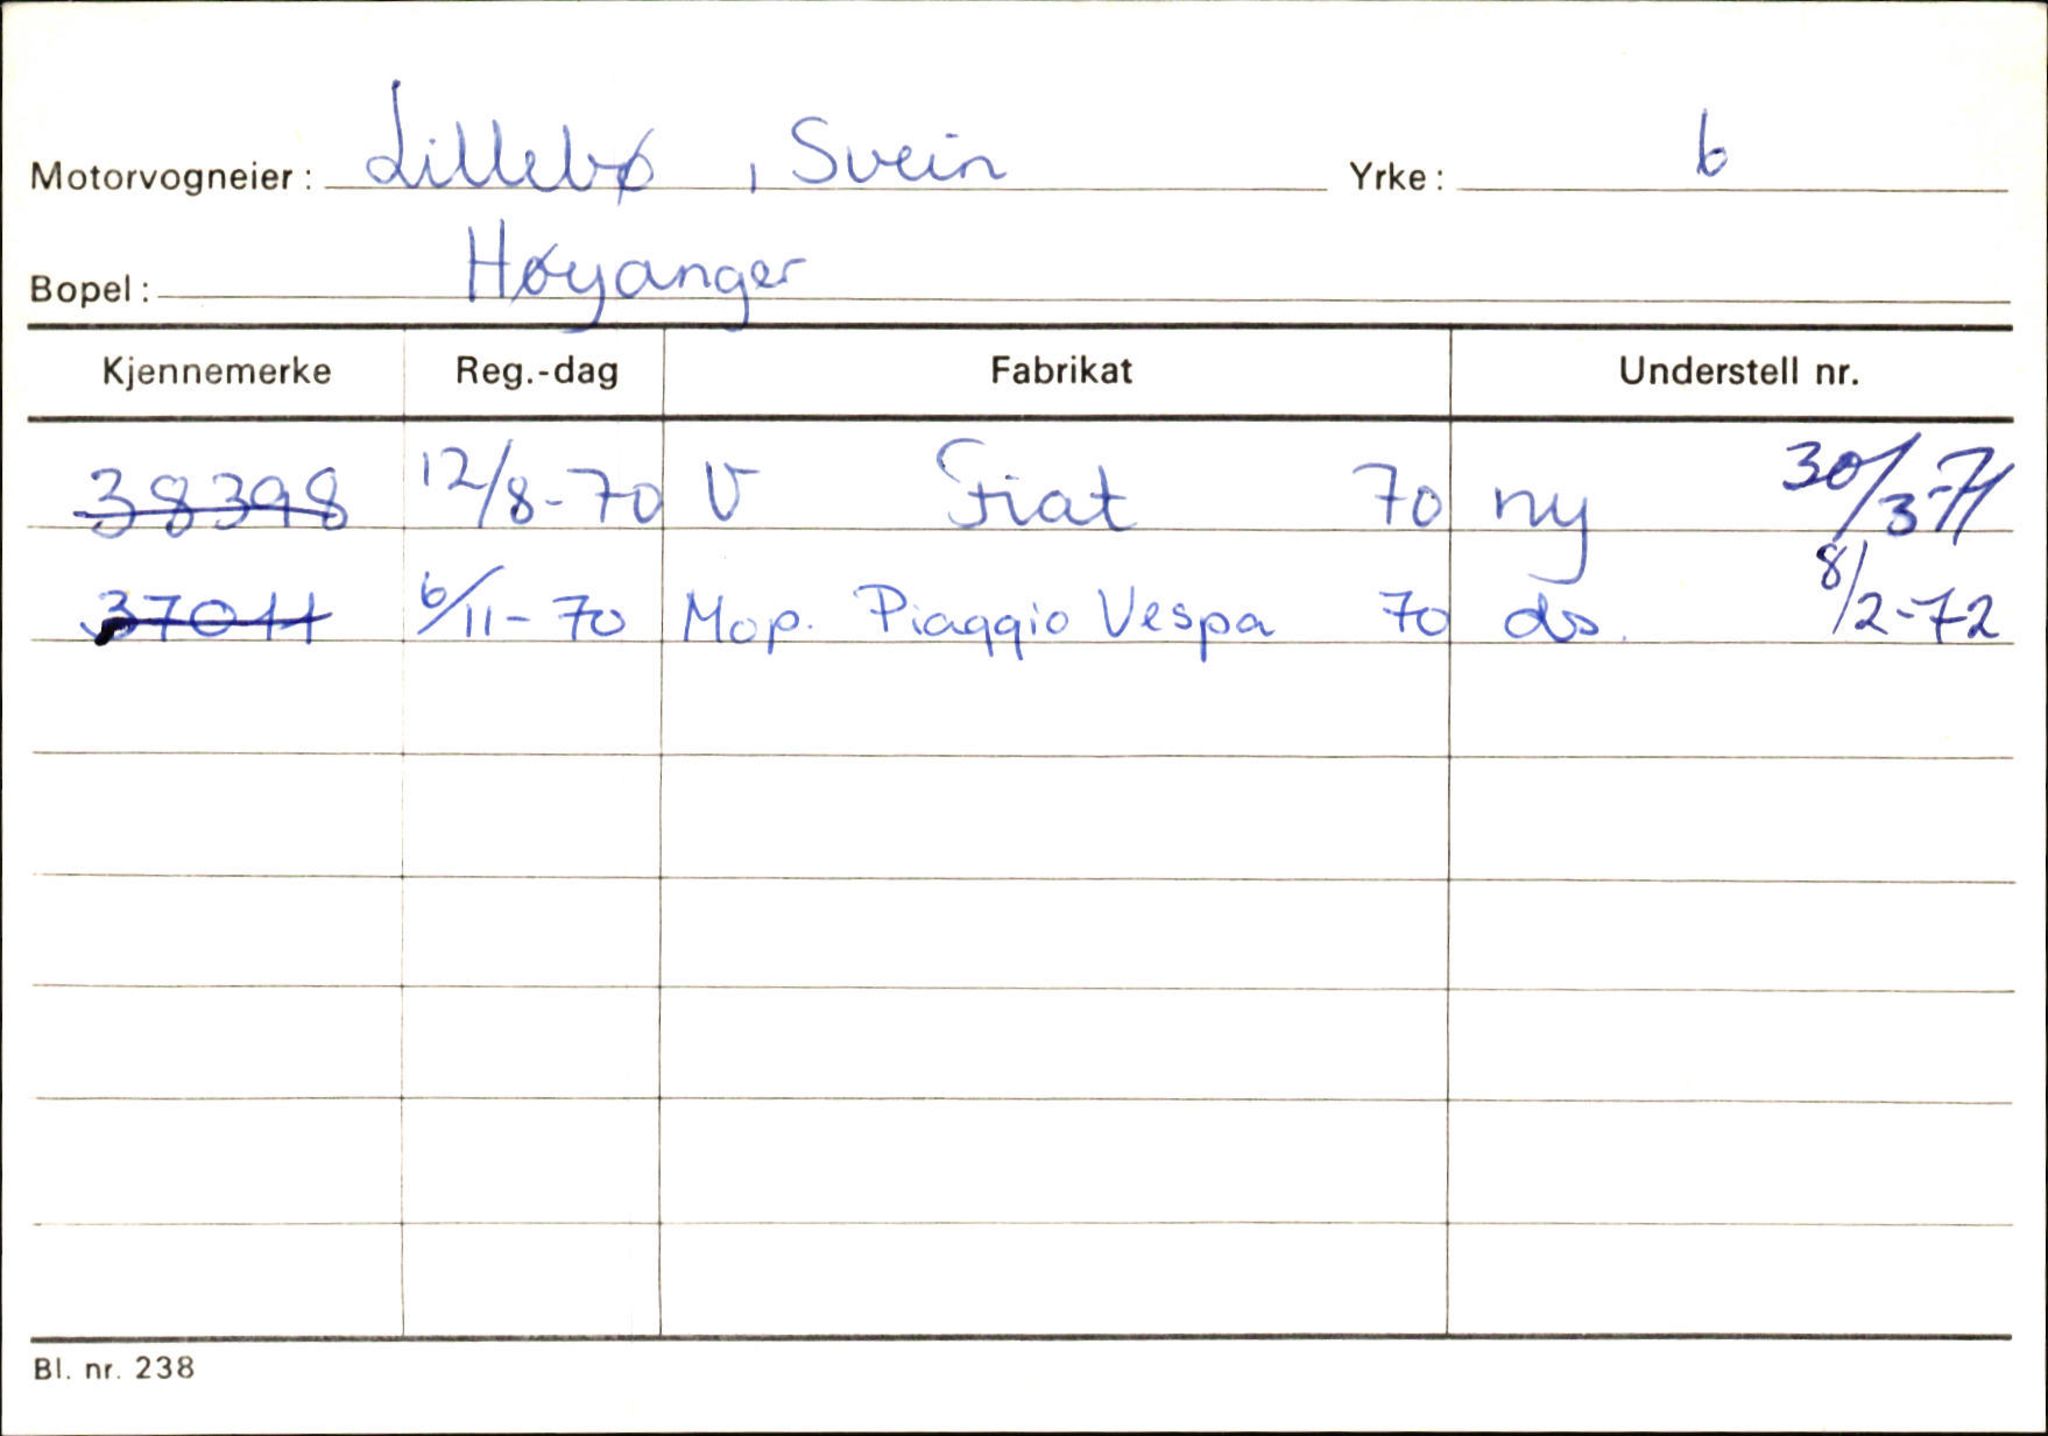 Motorvogneier: Lillebø, Svein Yrke: 6
Bopel: Høyanger
Kjennemerke Reg.-dag Fabrikat Understell nr.
38398 12/8-70 V Fiat 70 ny 30/3-71
37011 6/11-70 Mop. Piaggio Vespa 70 ds. 8/2-72
Bl. nr. 238